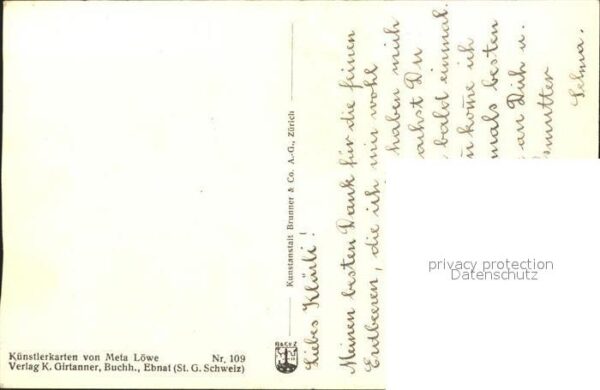 Liebes Klärli!
Meinen besten Dank für die feinen
Erdbeeren, die ich mir wohl
haben mich
machst Du
bald einmal.
kome ich
mals besten
an Dich u.
smutter
Selma.
Kunstanstalt Brunner & Co. A.-G., Zürich
Künstlerkarten von Meta Löwe Nr. 109
Verlag K. Girtanner, Buchh., Ebnat (St. G. Schweiz)
privacy protection
Datenschutz